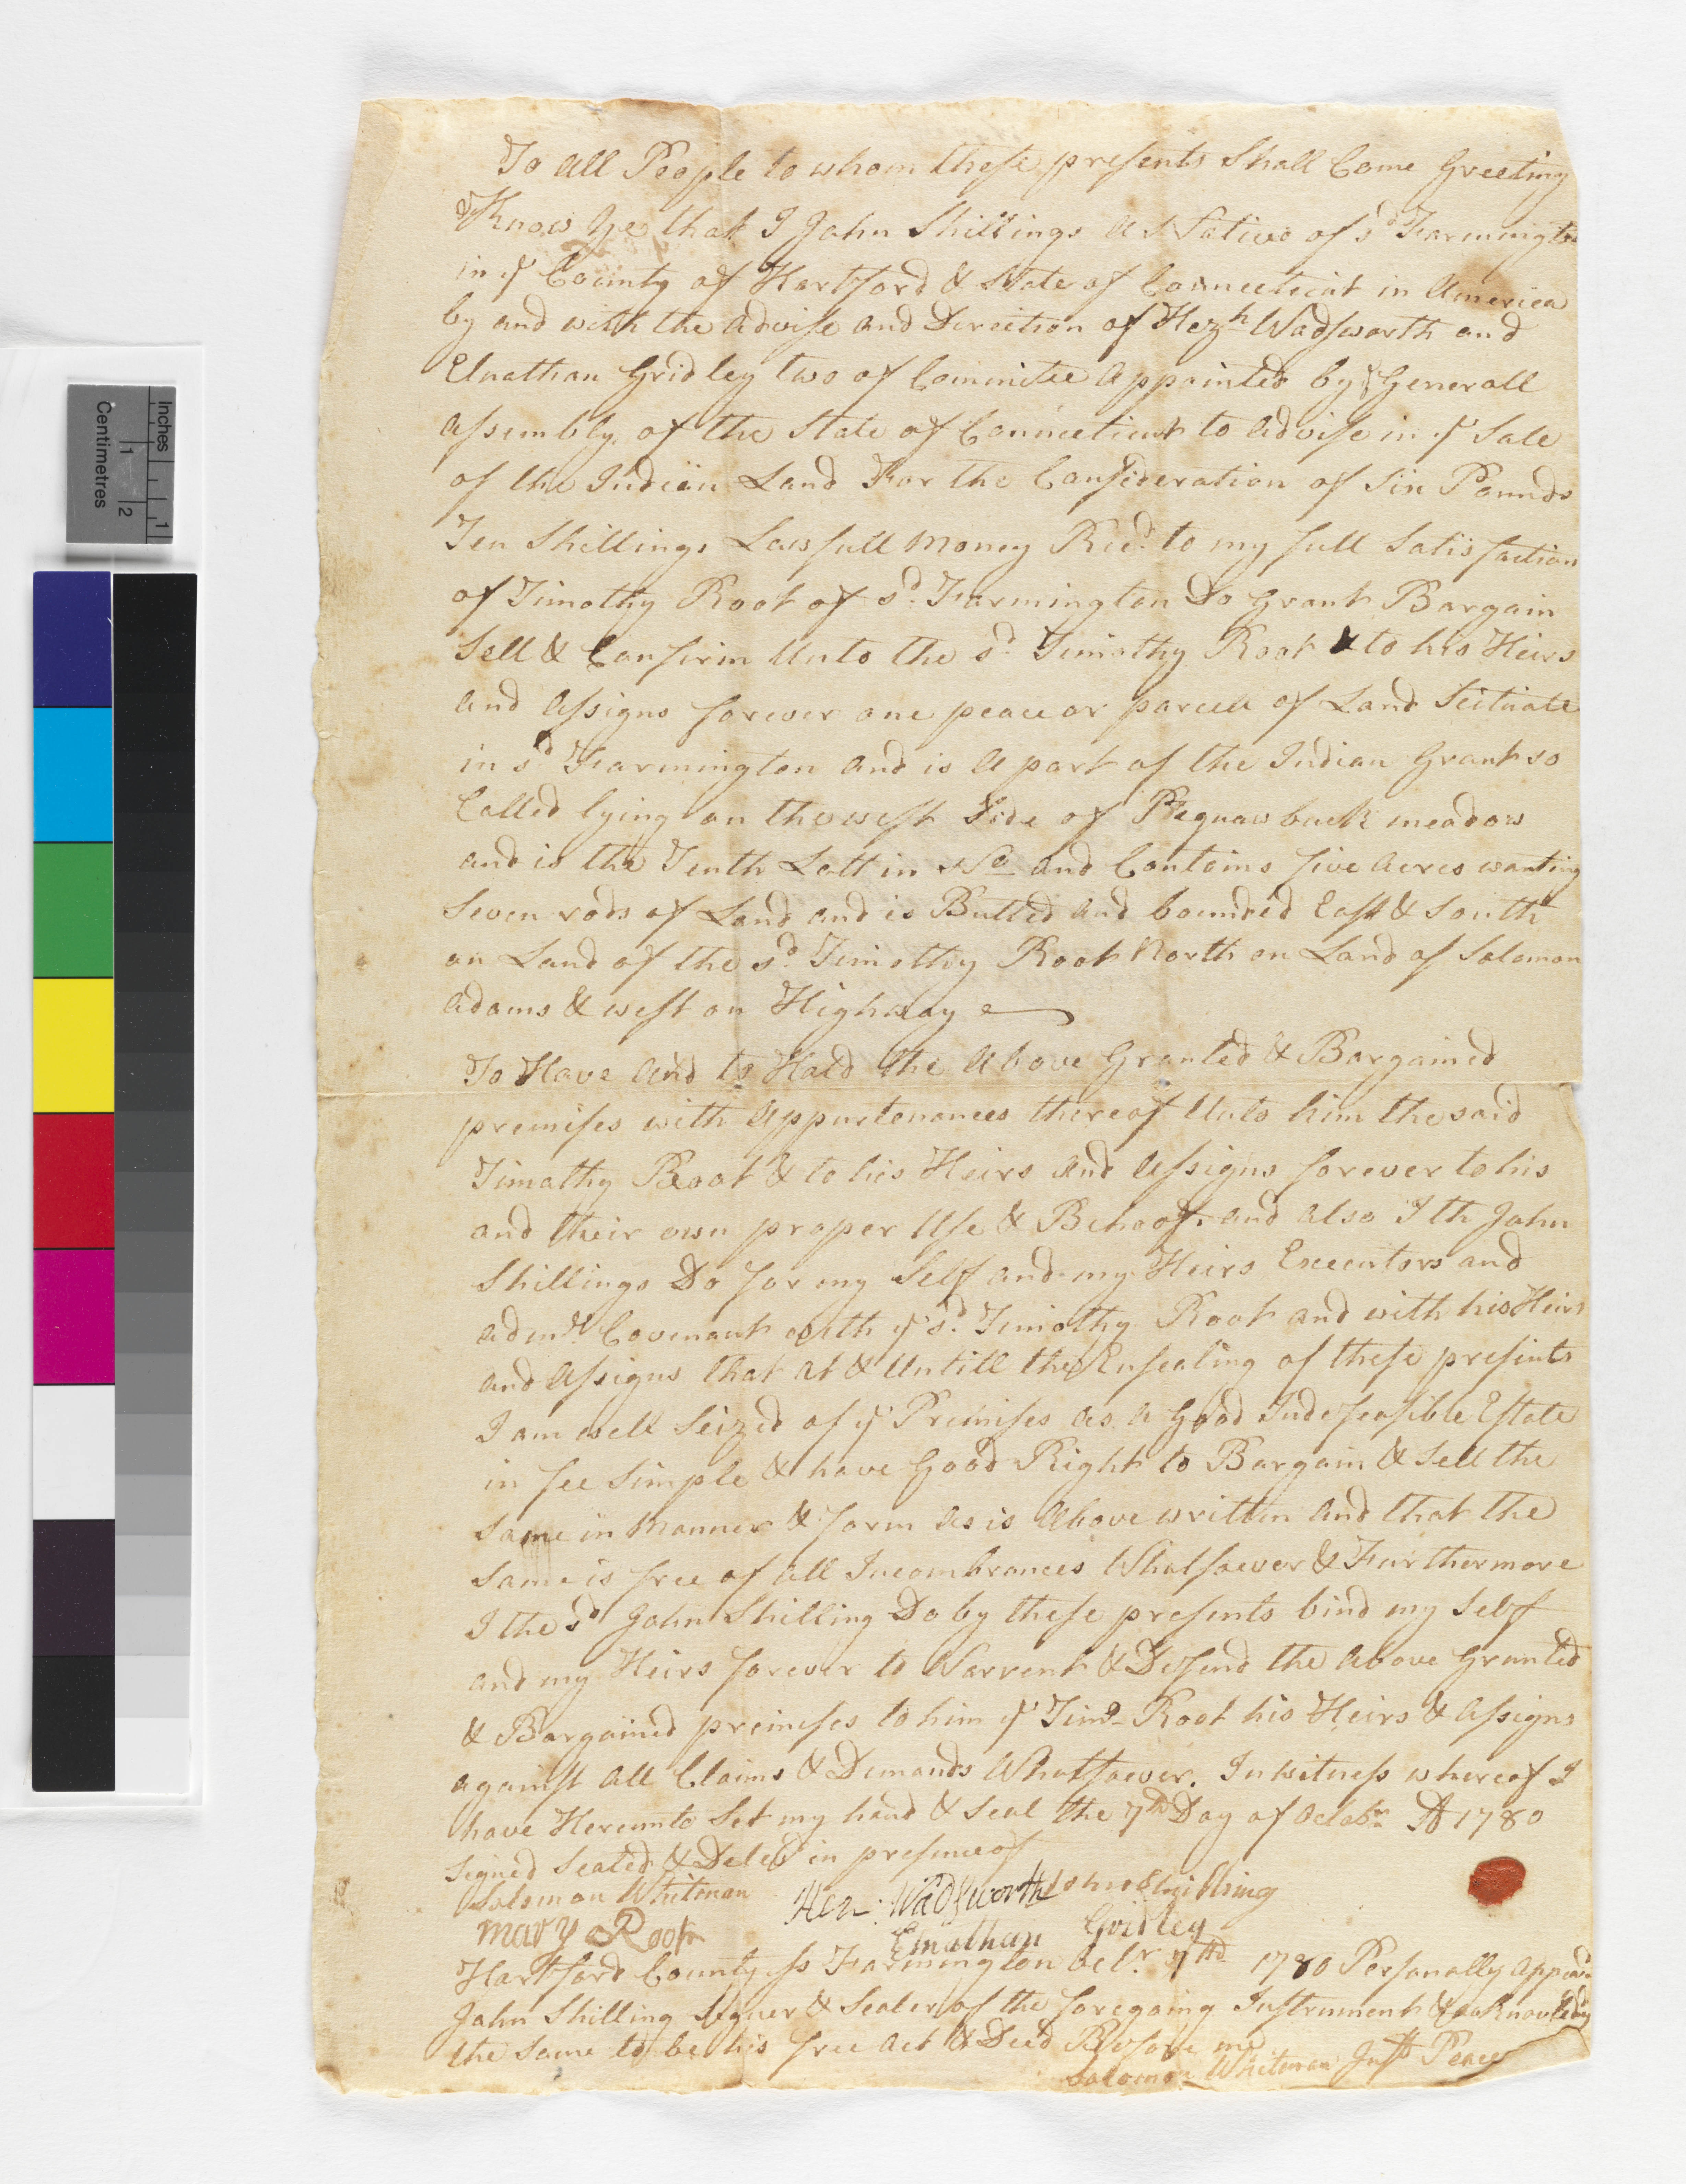 Inches
1
Centimetres
1
2
To all People to whom these presents Shall Come Greeting
Know ye that I John Shillings a Native of sd Farmington
in ye County of Hartford & State of Connecticut in America
by and with the advise and Direction of Hezh Wadsworth and
Elnathan Gridley two of Committee appointed by ye Generall
assembly of the State of Connecticut to advise in ye Sale
of the Indian Land For the Consideration of Six Pounds
Ten Shillings Lawfull money Recd to my full Satisfaction
of Timothy Root of sd Farmington Do Grant Bargain
Sell & Confirm Unto the sd Timothy Root & to his Heirs
and assigns forever one peace or parcell of Land Scituate
in sd Farmington and is a part of the Indian Grant so
Called lying on the west Side of Peguawbuck meadow
and is the Tenth Lott in No and Contains five acres wanting
Seven rods of Land and is Butted and bounded East & South
on Land of the sd Timothy Root North on Land of Solomon
adams & west on Highway
To Have and to Hold the above Granted & Bargained
premises with appurtenances thereof Unto him the said
Timothy Root & to his Heirs and assigns forever to his
and their own proper Use & Behoof. and also I th John
Shillings Do for my Self and my Heirs Executors and
admrs Covenant with ye sd Timothy Root and with his Heirs
and assigns that at & Untill the Ensealing of these presents
I am well Seized of ye Premises as a Good Indefeasible Estate
in fee Simple & have Good Right to Bargain & Sell the
Same in manner & form as is above written and that the
Same is free of all Incombrances Whatsoever & Furthermore
I the sd John Shilling Do by these presents bind my Self
and my Heirs forever to Warrent & Defend the above Granted
& Bargained premises to him ye Timo Root his Heirs & assigns
against all Claims & Demands Whatsoever. In witness whereof I
have Hereunto Set my hand & Seal the 7th Day of Octobr AD 1780
Signed Sealed & Deled in presence of
Solomon Whitman Hez: Wadsworth John Shilling
Mary Root Elnathan Gridley
Hartford County ss Farmington Octr 7th 1780 Personally appeard
John Shilling Signer & Sealer of the foregoing Instrument & acknowledg
the Same to be his free act & Deed Before me
Solomon Whitman Just Peace